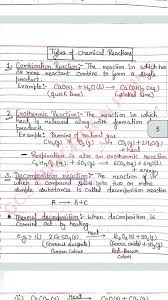 Types of Chemical Reactions
1. Combination Reaction:- The reaction in which two
or more reactant combine to form a single
product.
Example:- CaO(s) + H2O(l) → Ca(OH)2 (aq)
(Quick lime) (Slaked lime)
2. Exothermic Reaction:- The reaction in which
heat is released along with formation of
products.
Example:- Burning of natural gas
CH4(g) + O2(g) → CO2(g) + 2H2O(g)
+ Heat
- Respiration is also an exothermic reaction.
5
3. Decomposition reaction:- The reaction in
which a compound splits into two or more
simple substances is called decomposition reaction
A → B + C
Thermal decomposition:- When decomposition is
carried out by heating
Eg:- (i) 2FeSO4(s) → Fe2O3(s) + SO2(g) +
(Ferrous sulphate) (Ferric oxide) + SO3(g)
Green colour Red-Brown
colour